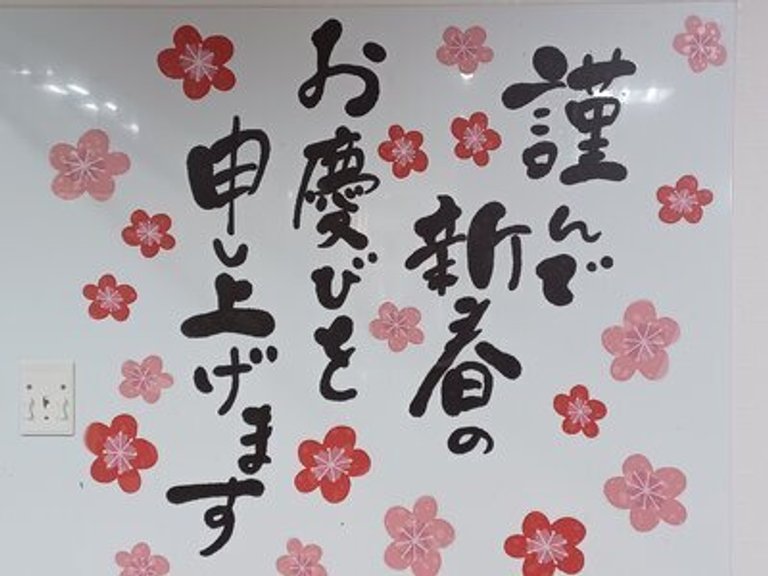 謹んで
新春の
お慶びを
申し上げます